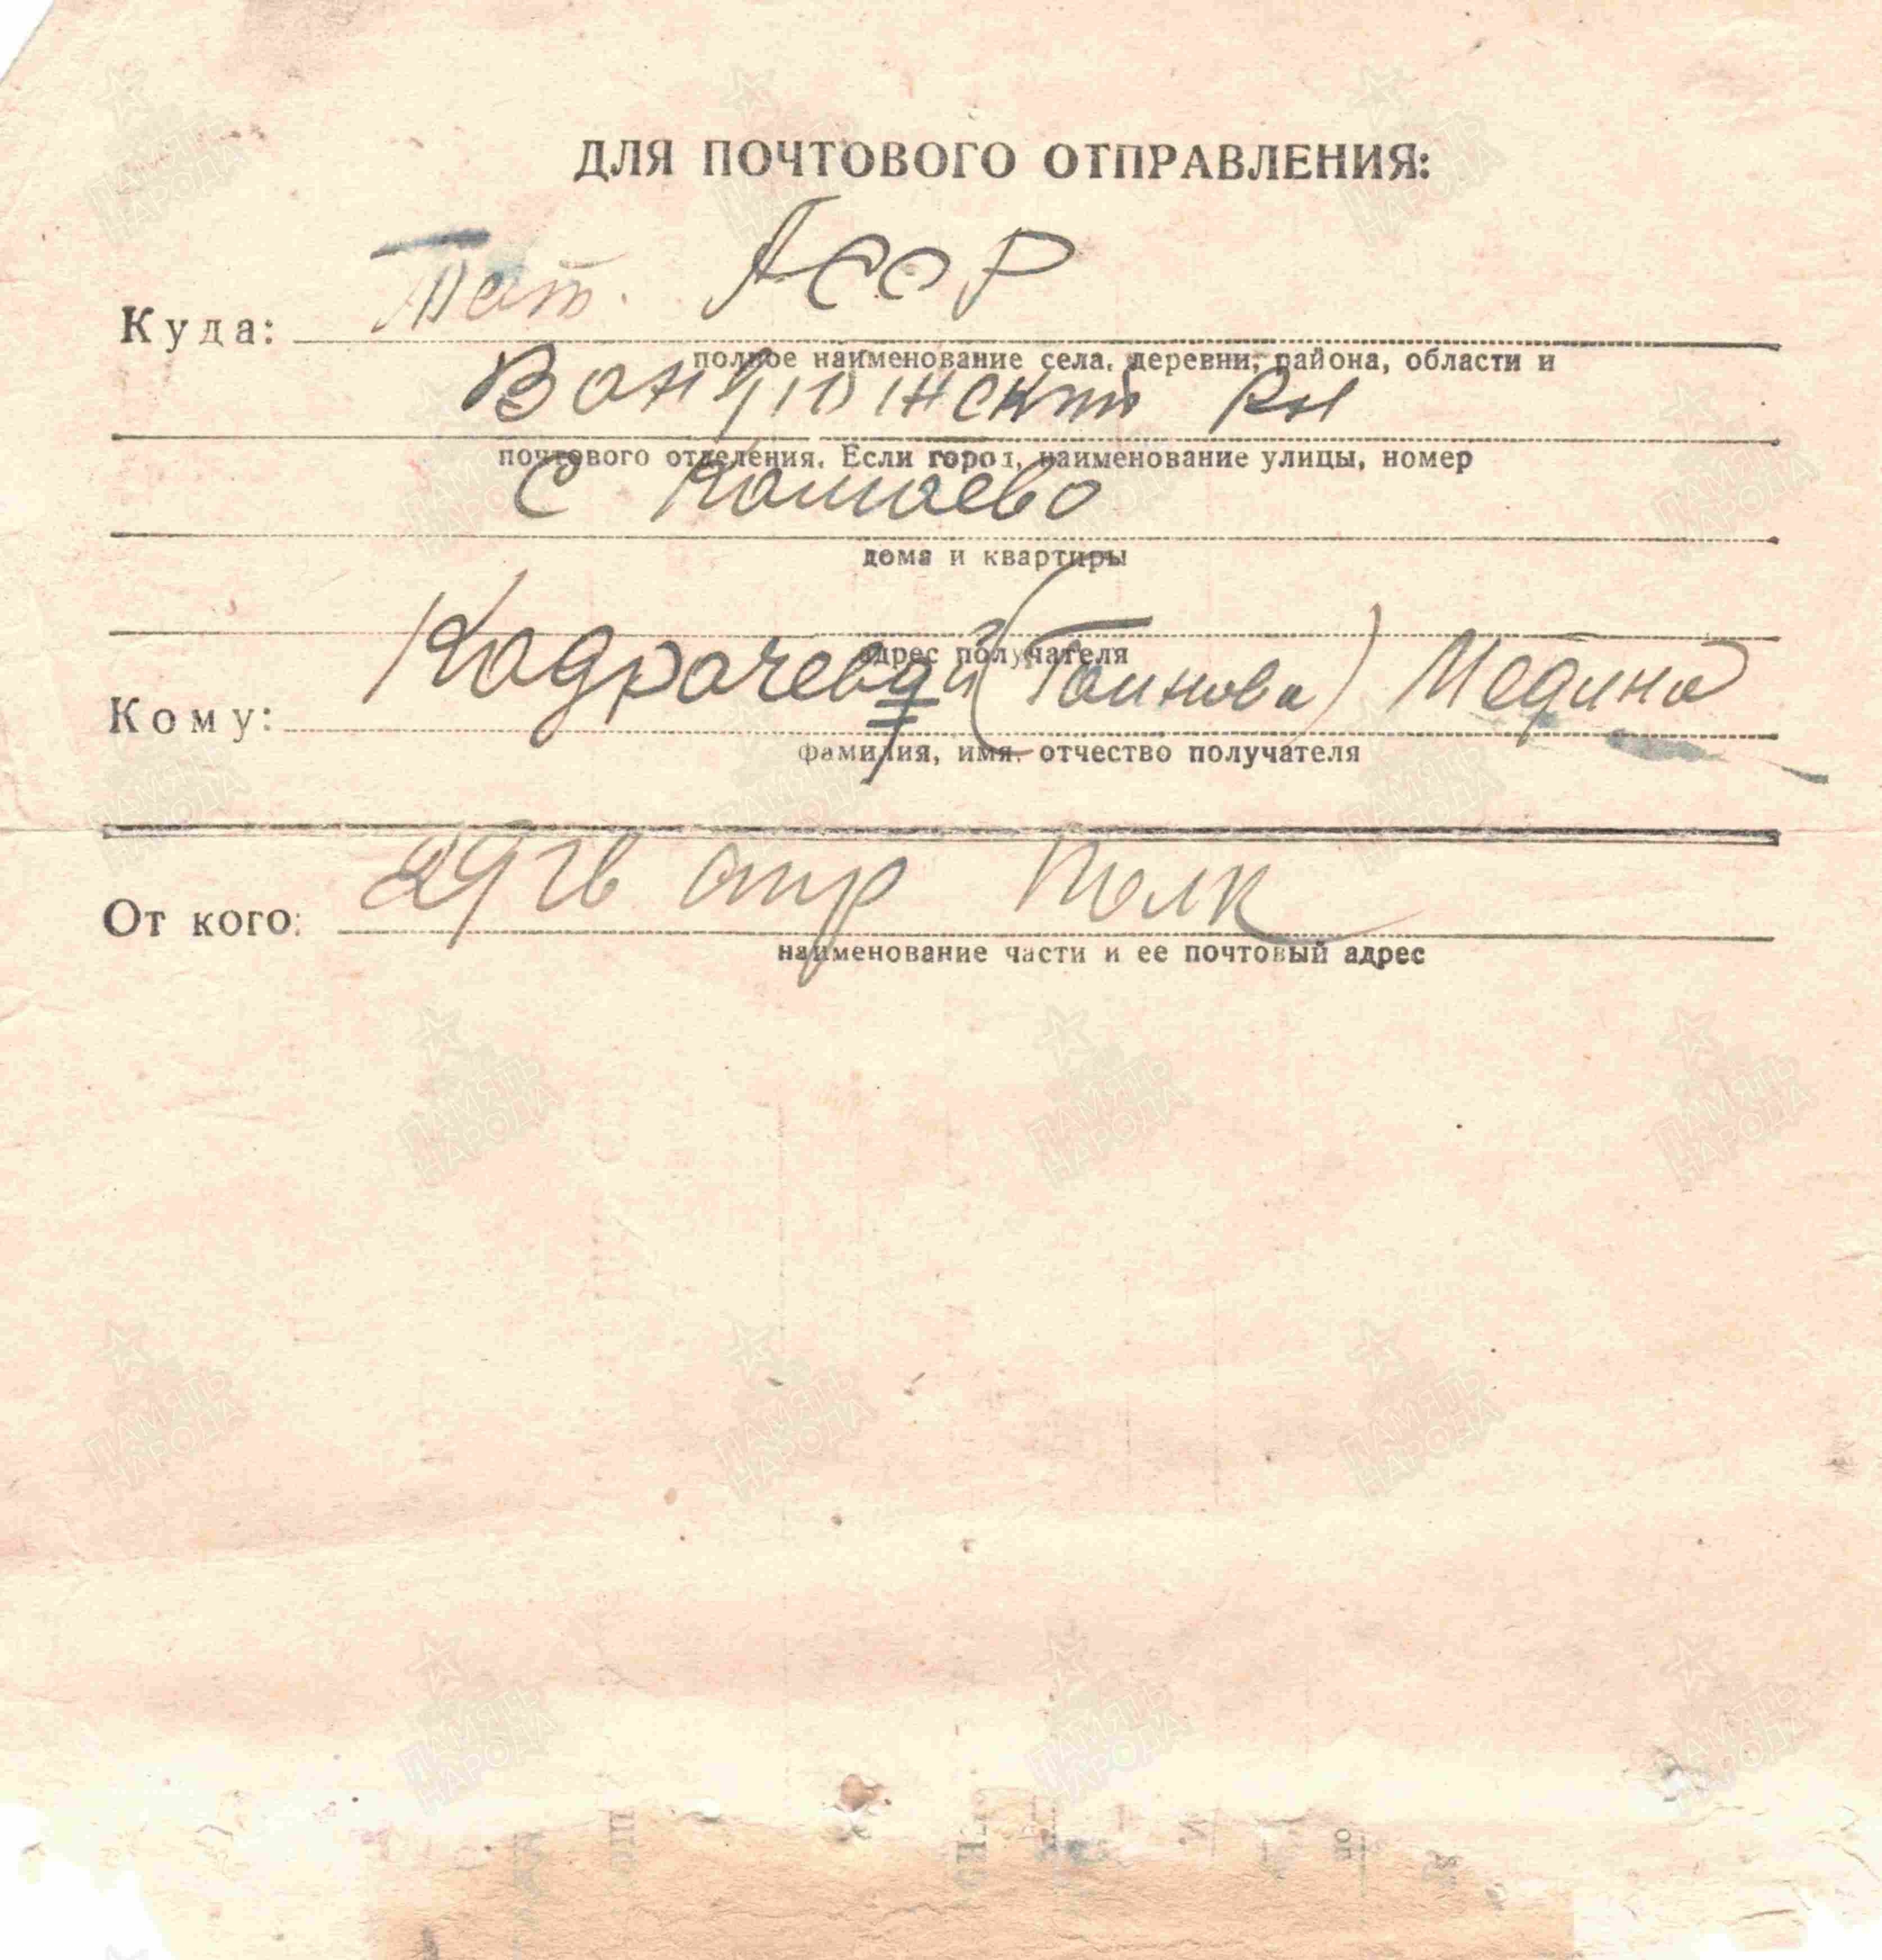 ДЛЯ ПОЧТОВОГО ОТПРАВЛЕНИЯ:
Куда: Тат. АССР
полное наименование села, деревни, района, области и
РН
почтового отделения. Если город, наименование улицы, номер
С
дома и квартиры
адрес получателя
Кому: (Гаинова) Медина
фамилия, имя, отчество получателя
От кого: 29 гв стр Полк
наименование части и ее почтовый адрес
ПАМЯТЬ НАРОДА